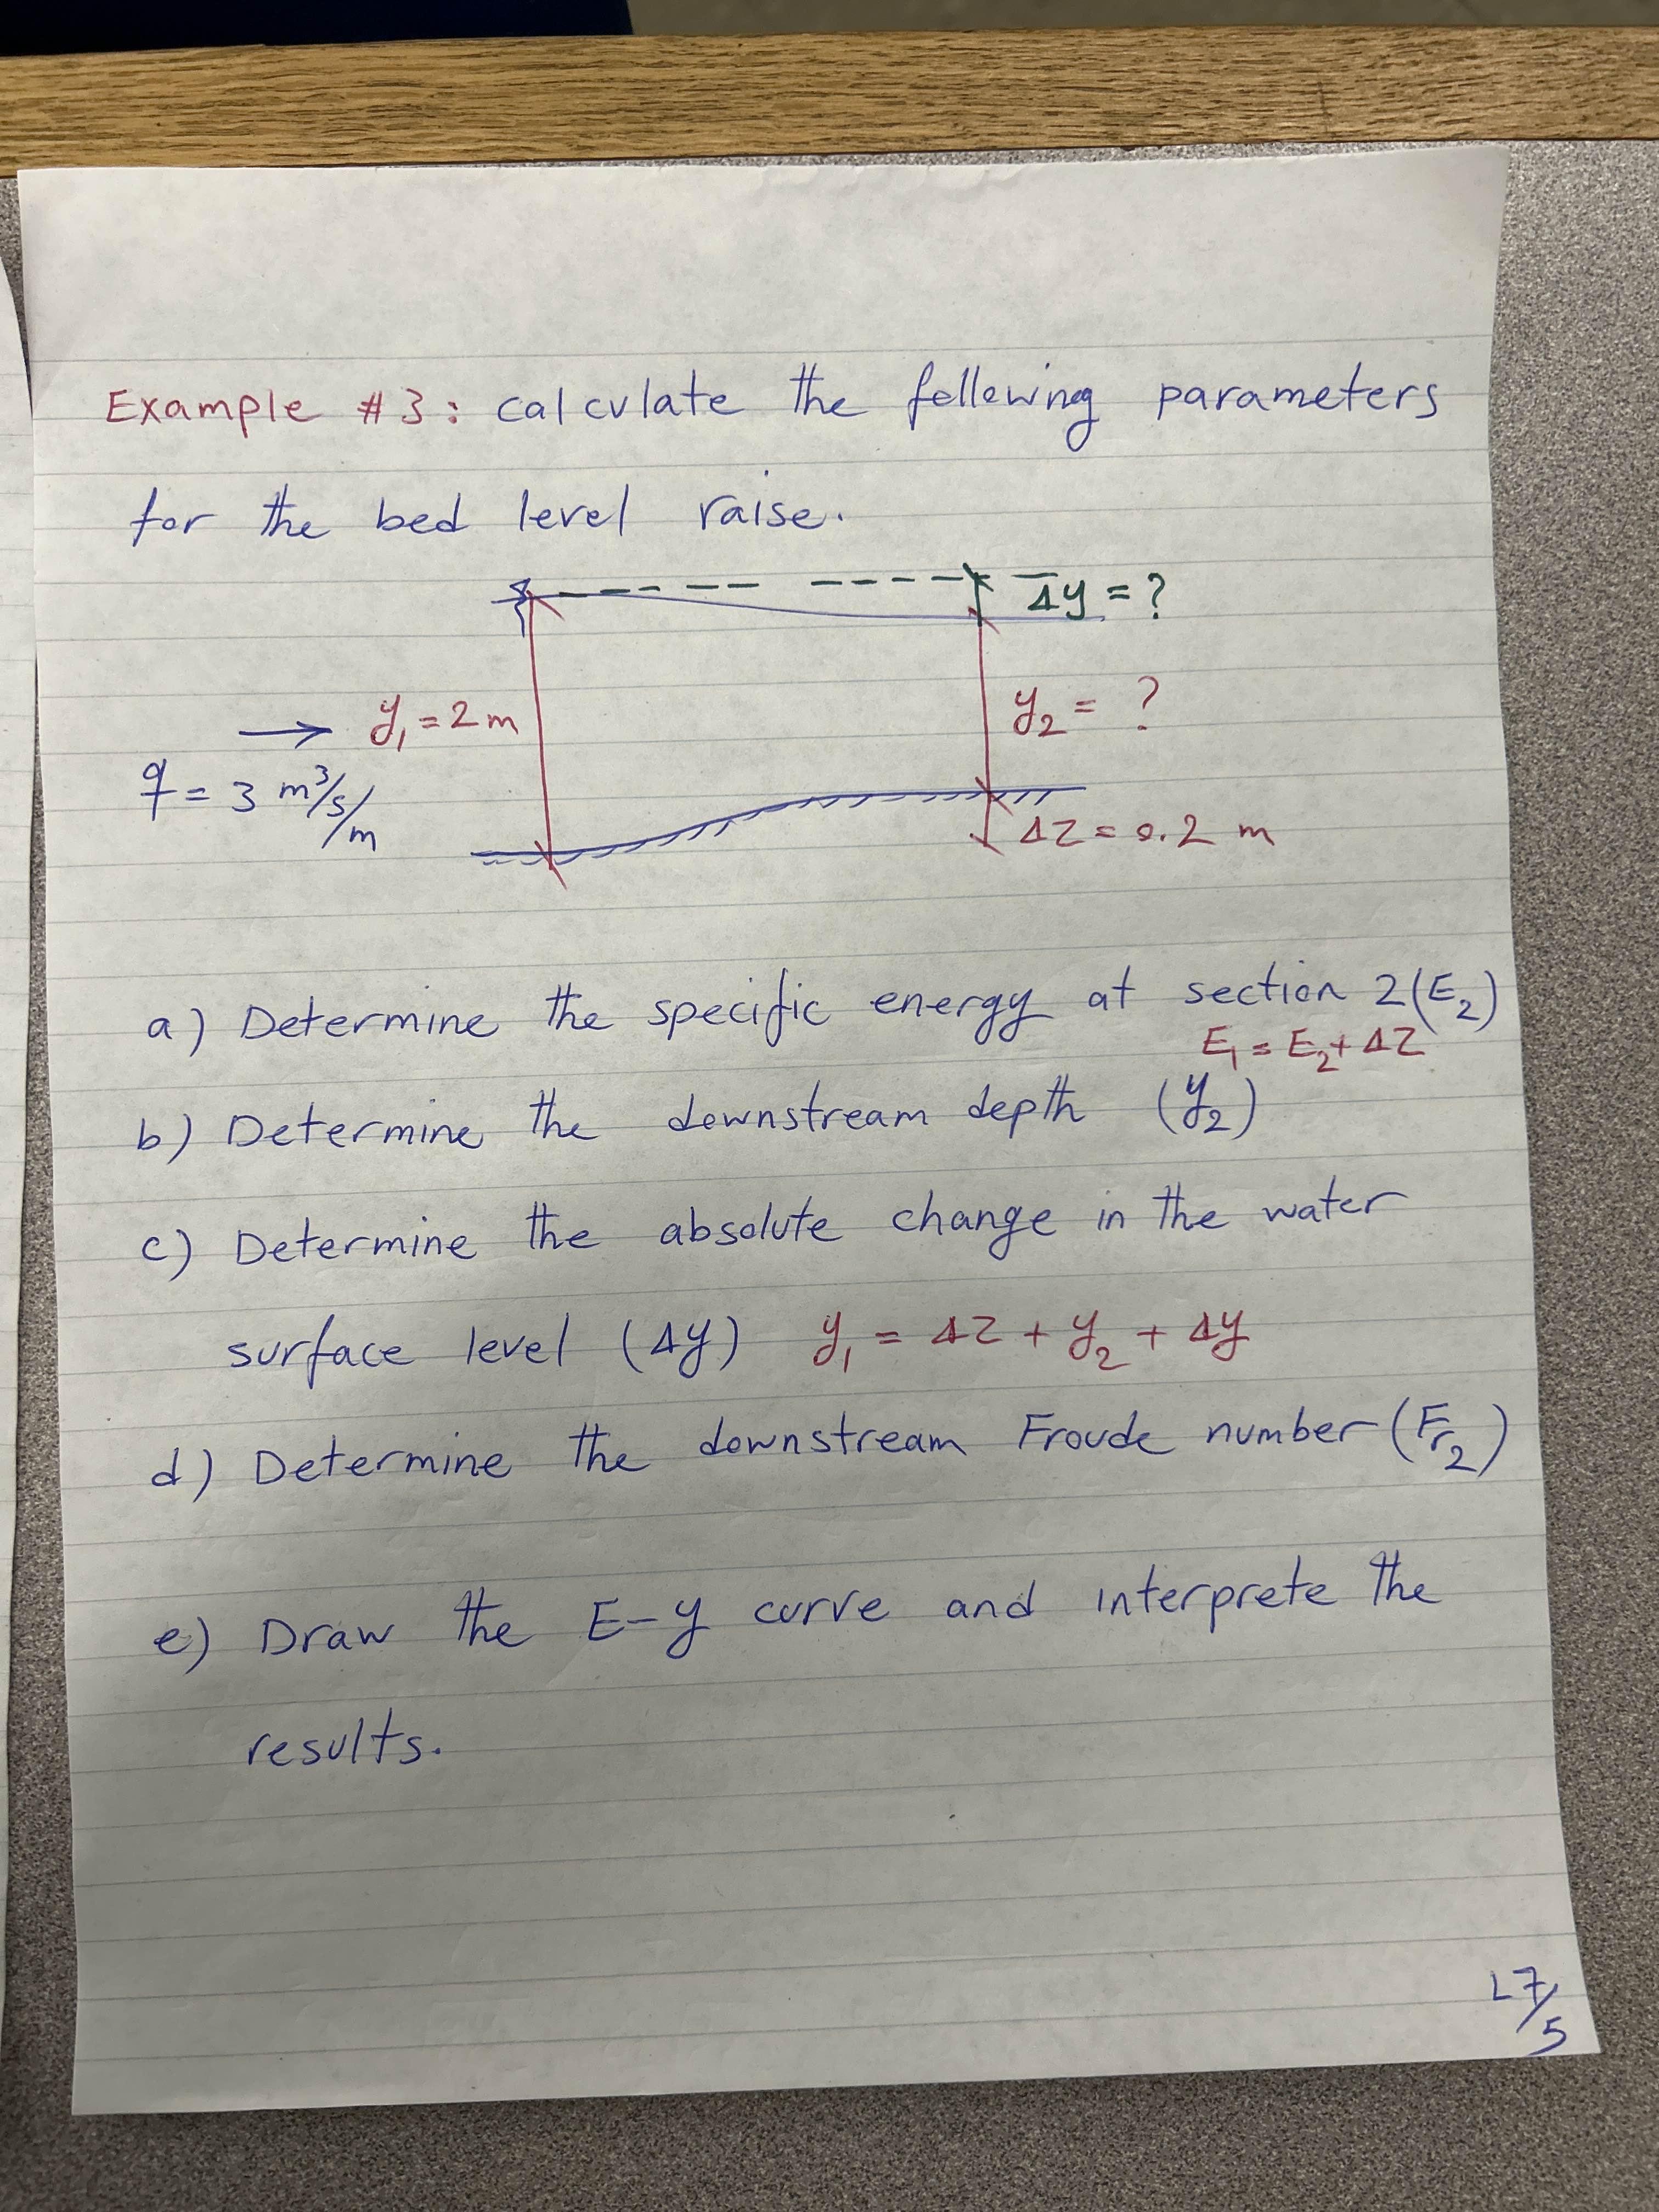 Example #3: calculate the following parameters
for the bed level raise.
Δy = ?
y₁ = 2 m
y₂ = ?
q = 3 m³/s/m
ΔZ = 0.2 m
a) Determine the specific energy at section 2 (E₂)
E₁ = E₂ + ΔZ
b) Determine the downstream depth (y₂)
c) Determine the absolute change in the water
surface level (Δy) y₁ = ΔZ + y₂ + Δy
d) Determine the downstream Froude number (Fr₂)
e) Draw the E-y curve and interprete the
results.
L7/5